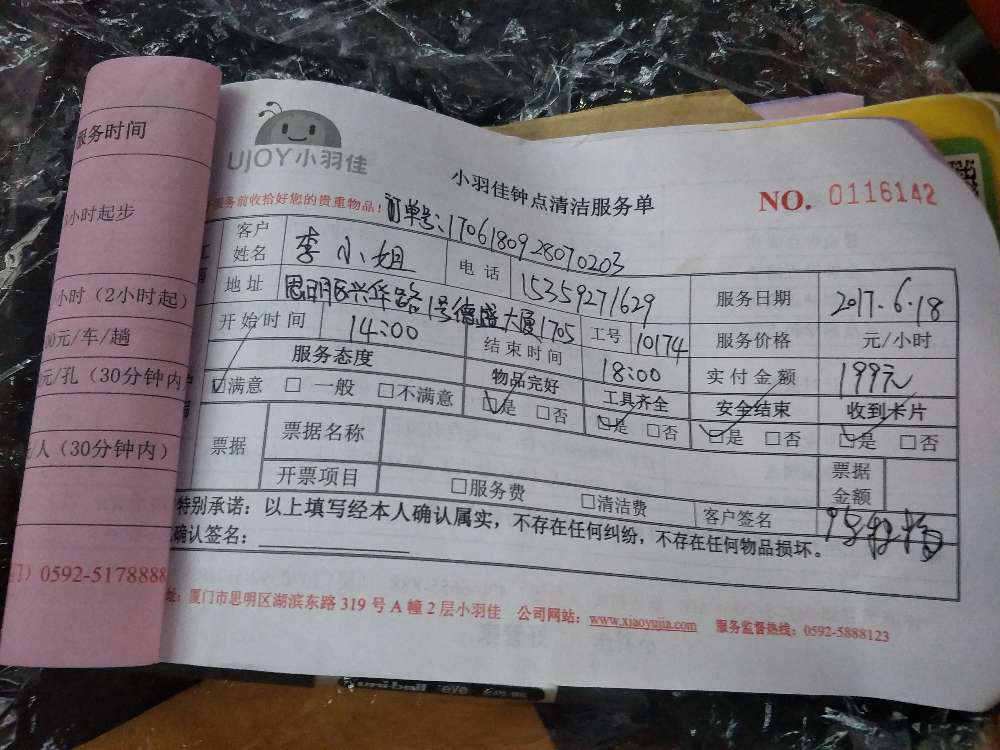 服务时间
小时起步
小时（2小时起）
00元/车/趟
元/孔（30分钟内
/人（30分钟内）
0592-5178888
UJOY小羽佳
小羽佳钟点清洁服务单
NO. 0116142
服务前收拾好您的贵重物品！
订单号：1706180928070203
客户姓名 李小姐 电话 15359271629 服务日期 2017.6.18
地址 思明区兴华路1号德盛大厦1705 工号 10174 服务价格 元/小时
开始时间 14:00 结束时间 18:00 实付金额 199元
服务态度 物品完好 工具齐全 安全结束 收到卡片
☑满意 □一般 □不满意 ☑是 □否 ☑是 □否 ☑是 □否 ☑是 □否
票据 票据名称 票据金额
开票项目 □服务费 □清洁费 客户签名
特别承诺：以上填写经本人确认属实，不存在任何纠纷，不存在任何物品损坏。
确认签名：
址：厦门市思明区湖滨东路319号A幢2层小羽佳 公司网站：www.xiaoyujia.com 服务监督热线：0592-5888123
uni-ball eye